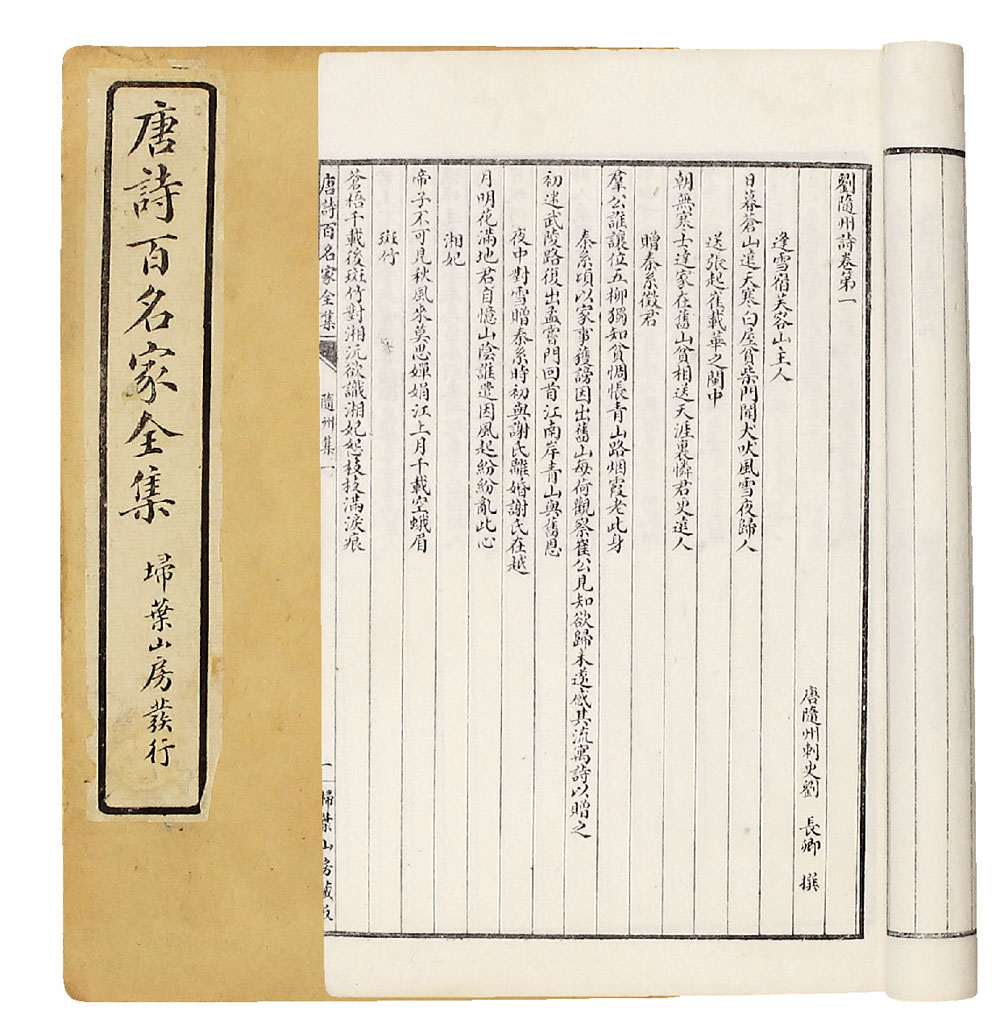 唐詩百名家全集
埽葉山房發行
劉隨州詩卷第一
唐隨州刺史劉 長卿 撰
逢雪宿芙容山主人
日暮蒼山遠天寒白屋貧柴門聞犬吠風雪夜歸人
送張起崔載華之閩中
朝無寒士達家在舊山貧相送天涯裏憐君更遠人
贈秦系徵君
羣公誰讓位五柳獨知貧惆悵青山路烟霞老此身
秦系頃以家事獲謗因出舊山每荷觀察崔公見知欲歸未遂感其流寓詩以贈之
初迷武陵路復出孟嘗門回首江南岸青山與舊恩
夜中對雪贈秦系時初與謝氏離婚謝氏在越
月明花滿地君自憶山陰誰遣因風起紛紛亂此心
湘妃
帝子不可見秋風來莫思嬋娟江上月千載空蛾眉
斑竹
蒼梧千載後斑竹對湘沅欲識湘妃怨枝枝滿淚痕
唐詩百名家全集 隨州集一 一 掃葉山房藏板